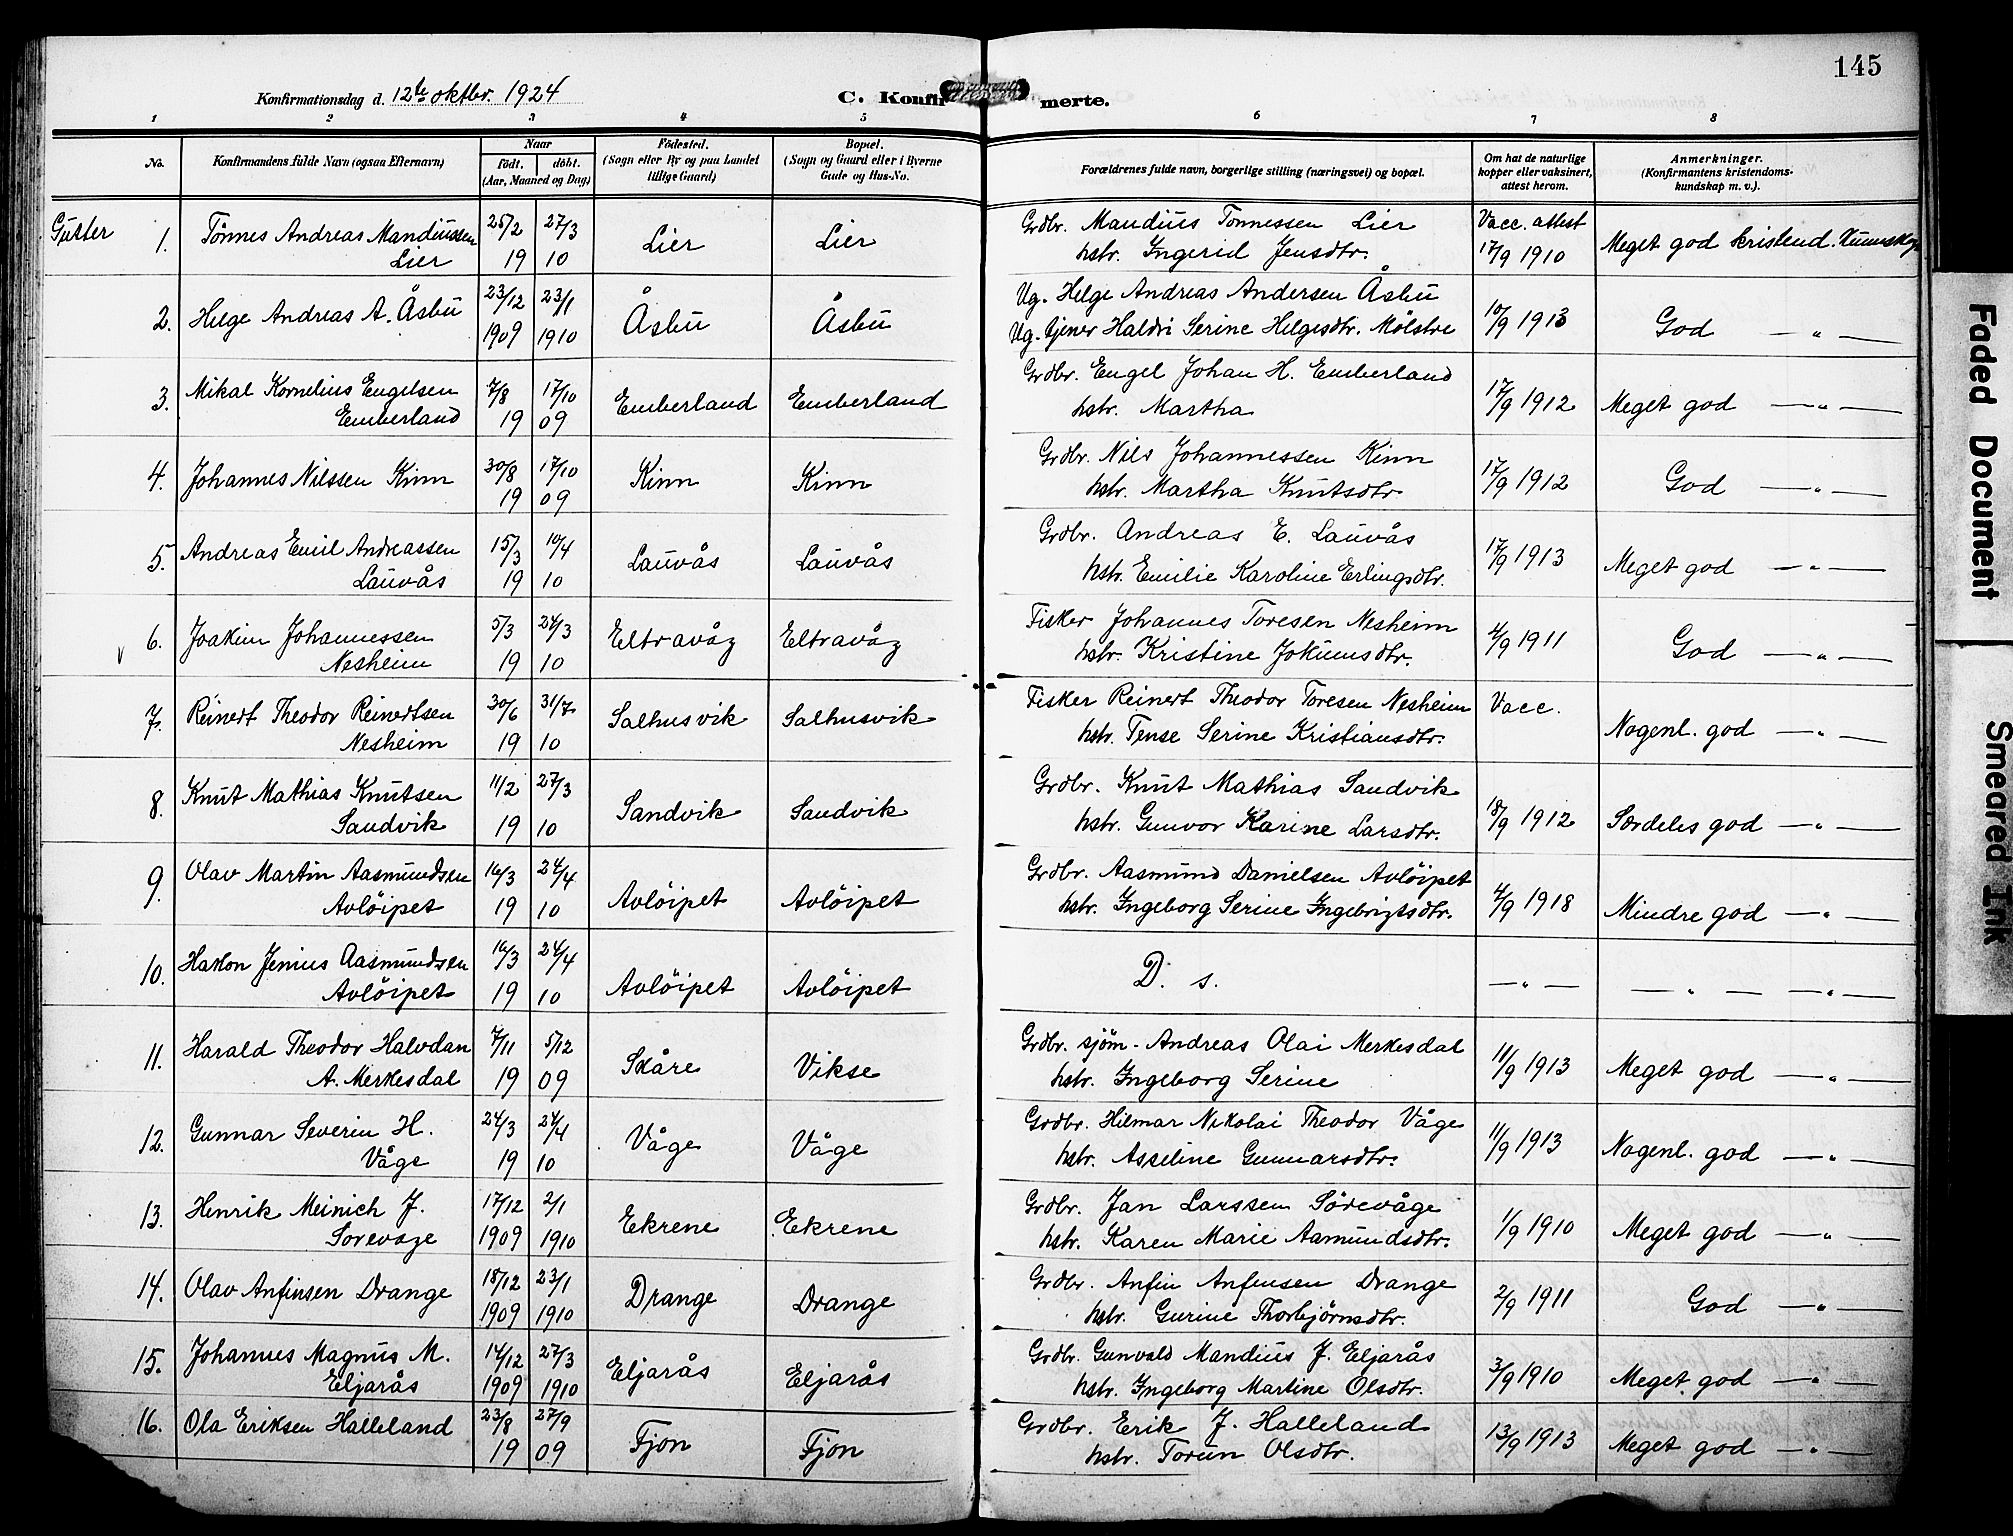 145
Konfirmationsdag d. 12te oktbr. 1924
C. Konfirmerte.
1 2 3 4 5 6 7 8
No.
Konfirmandens fulde Navn (ogsaa Efternavn)
Naar
født. døbt.
(Aar, Maaned og Dag)
Fødested.
(Sogn eller By og paa Landet
tillige Gaard)
Bopæl.
(Sogn og Gaard eller i Byerne
Gade og Hus-No.
Forældrenes fulde navn, borgerlige stilling (næringsvei) og bopæl.
Om hat de naturlige
kopper eller vaksinert,
attest herom.
Anmerkninger.
(Konfirmantens kristendoms-
kundskap m. v.).
Gutter 1. Tönnes Andreas Mandiussen 25/2 27/3 Lier Lier Grdbr. Mandius Tönnessen Lier Vacc. attest Meget god kristend.
Lier 19 10 hstr. Ingerid Jensdtr. 17/9 1910
2. Helge Andreas A. Åsbu 23/12 23/1 Åsbu Åsbu Ug. Helge Andreas Andersen Åsbu 10/9 1913 God — " —
1909 1910 Ug. tjener Haldri Serine Helgesdtr. Mølstre
3. Mikal Kornelius Engelsen 7/8 17/10 Emberland Emberland Grdbr. Engel Johan H. Emberland 17/9 1912 Meget god — " —
Emberland 19 09 hstr. Martha
4. Johannes Nilssen Kinn 30/8 17/10 Kinn Kinn Grdbr. Nils Johannessen Kinn 17/9 1912 God — " —
19 09 hstr. Martha Knutsdtr.
5. Andreas Emil Andreassen 15/3 10/4 Lauvås Lauvås Grdbr. Andreas E. Lauvås 17/9 1913 Meget god — " —
Lauvås 19 10 hstr. Emilie Karoline Erlingsdtr.
6. Joakim Johannessen 5/3 24/3 Eltravåg Eltravåg Fisker Johannes Toresen Nesheim 4/9 1911 God — " —
Nesheim 19 10 hstr. Kristine Jokumsdtr.
7. Reinert Theodor Reinertsen 30/6 31/7 Salhusvik Salhusvik Fisker Reinert Theodor Toresen Nesheim Vacc. Nogenl. god — " —
Nesheim 19 10 hstr. Tense Serine Kristiansdtr.
8. Knut Mathias Knutsen 11/2 27/3 Sandvik Sandvik Grdbr. Knut Mathias Sandvik 18/9 1912 Særdeles god — " —
Sandvik 19 10 hstr. Gunvor Karine Larsdtr.
9. Olav Martin Aasmundsen 16/3 24/4 Avlöipet Avlöipet Grdbr. Aasmund Danielsen Avlöipet 4/9 1918 Mindre god — " —
Avlöipet 19 10 hstr. Ingeborg Serine Ingebrigtsdtr.
10. Hakon Jenius Aasmundsen 16/3 24/4 Avlöipet Avlöipet D. s. — " — — " — — " —
Avlöipet 19 10
11. Harald Theodor Halvdan 7/11 5/12 Skåre Vikse Grdbr. sjøm. Andreas Olai Merkesdal 11/9 1913 Meget god — " —
A. Merkesdal 19 09 hstr. Ingeborg Serine
12. Gunnar Severin H. 24/3 24/4 Våge Våge Grdbr. Hilmar Nikolai Theodor Våge 11/9 1913 Nogenl. god — " —
Våge 19 10 hstr. Asseline Gunnarsdtr.
13. Henrik Meinich J. 17/12 2/1 Ekrene Ekrene Grdbr. Jan Larssen Sörevåge 1/9 1910 Meget god — " —
Sorevage 1909 1910 hstr. Karen Marie Aamundsdtr.
14. Olav Anfinsen Drange 18/12 23/1 Drange Drange Grdbr. Anfin Anfinsen Drange 2/9 1911 God — " —
1909 1910 hstr. Gurine Thorbjørnsdtr.
15. Johannes Magnus M. 14/12 27/3 Eljarås Eljarås Grdbr. Gunvald Mandius J. Eljarås 3/9 1910 Meget god — " —
Eljarås 1909 1910 hstr. Ingeborg Martine Olsdtr.
16. Ola Eriksen Halleland 23/8 27/9 Fjon Fjon Grdbr. Erik J. Halleland 13/9 1913 Meget god — " —
19 09 hstr. Torun Olsdtr.
Faded Document
Smeared Ink